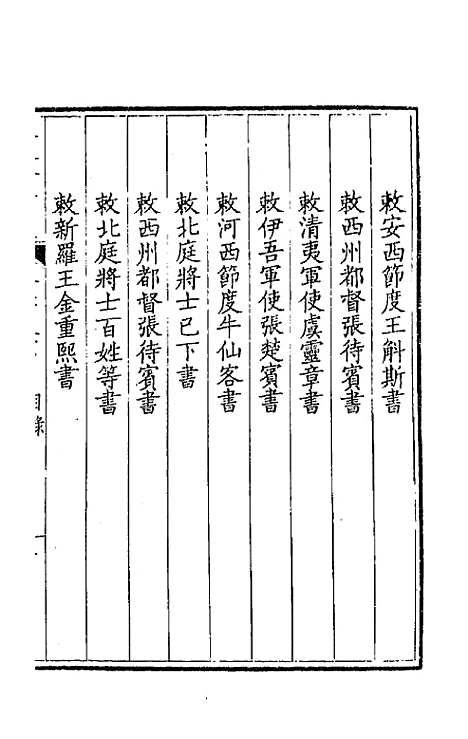 敕安西節度王斛斯書
敕西州都督張待賓書
敕清夷軍使虞靈章書
敕伊吾軍使張楚賓書
敕河西節度牛仙客書
敕北庭將士已下書
敕西州都督張待賓書
敕北庭將士百姓等書
敕新羅王金重熙書
目錄